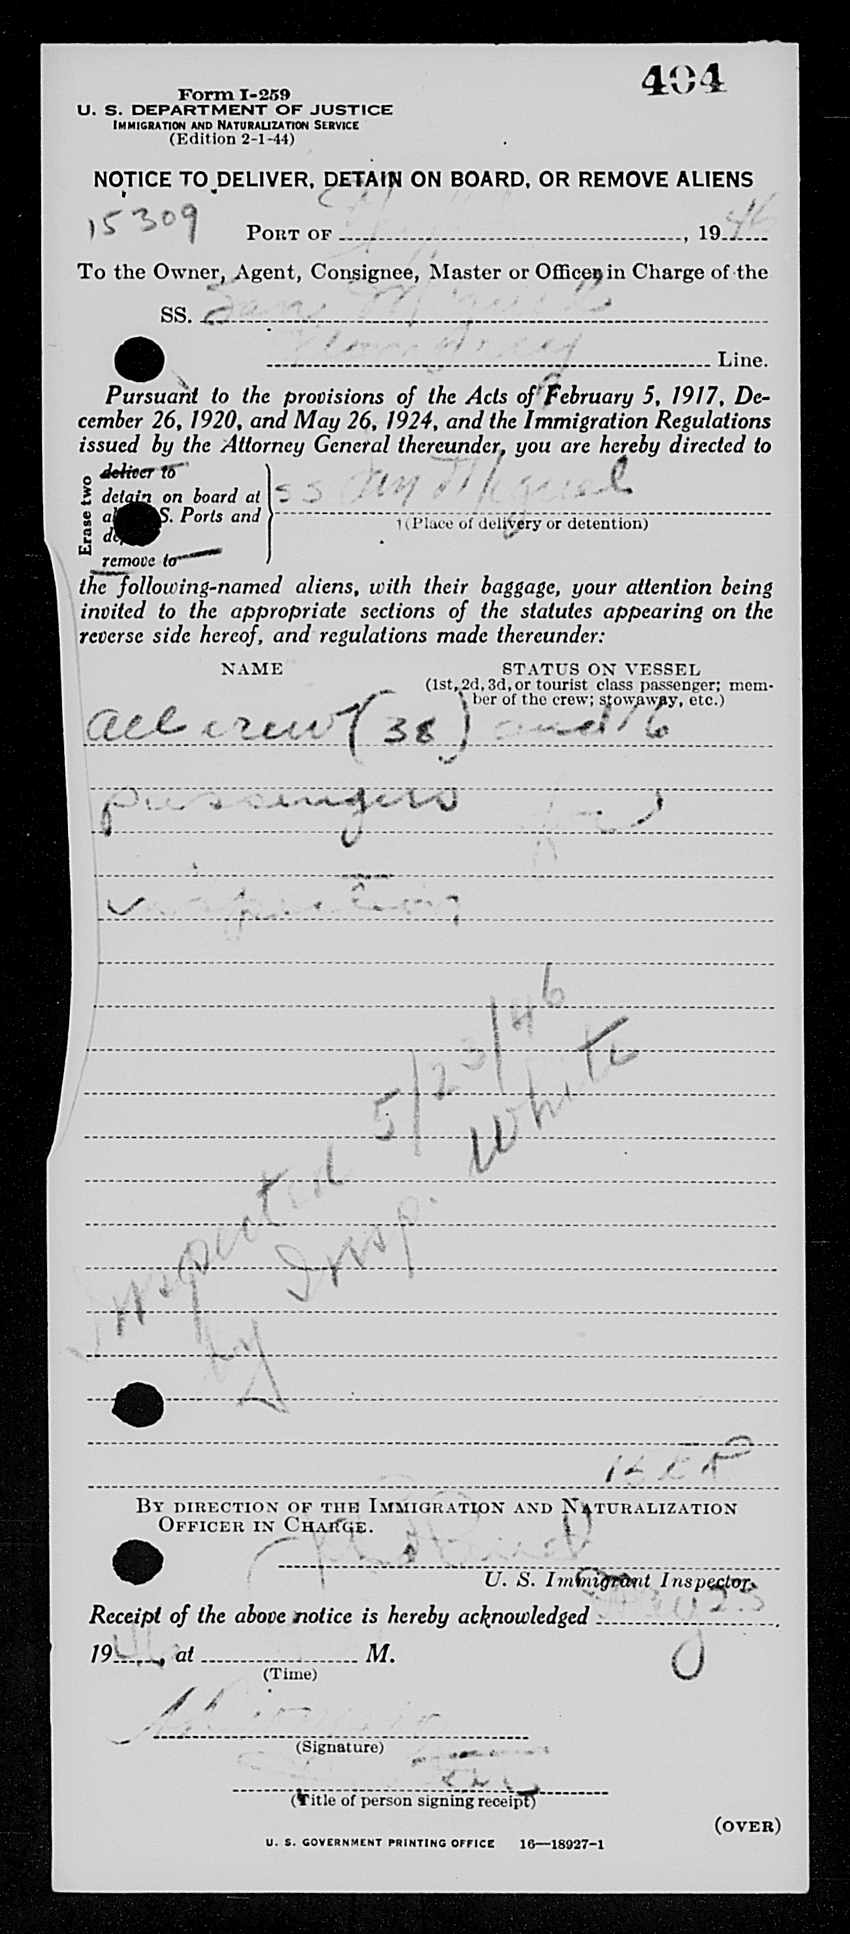 404
Form I-259
U. S. DEPARTMENT OF JUSTICE
IMMIGRATION AND NATURALIZATION SERVICE
(Edition 2-1-44)
NOTICE TO DELIVER, DETAIN ON BOARD, OR REMOVE ALIENS
15309
PORT OF , 1946
To the Owner, Agent, Consignee, Master or Officer in Charge of the
SS. San Miguel
Line.
Pursuant to the provisions of the Acts of February 5, 1917, De-
cember 26, 1920, and May 26, 1924, and the Immigration Regulations
issued by the Attorney General thereunder, you are hereby directed to
Erase two
deliver to
detain on board at
S. Ports and
remove to
SS San Miguel
(Place of delivery or detention)
the following-named aliens, with their baggage, your attention being
invited to the appropriate sections of the statutes appearing on the
reverse side hereof, and regulations made thereunder:
NAME STATUS ON VESSEL
(1st, 2d, 3d, or tourist class passenger; mem-
ber of the crew; stowaway, etc.)
all crew (38) and 16
passengers for
inspection
Inspected 5/23/46
by Insp. White
BY DIRECTION OF THE IMMIGRATION AND NATURALIZATION
OFFICER IN CHARGE.
U. S. Immigrant Inspector.
Receipt of the above notice is hereby acknowledged May 23,
1946, at M.
(Time)
(Signature)
(Title of person signing receipt)
(OVER)
U. S. GOVERNMENT PRINTING OFFICE 16—18927-1